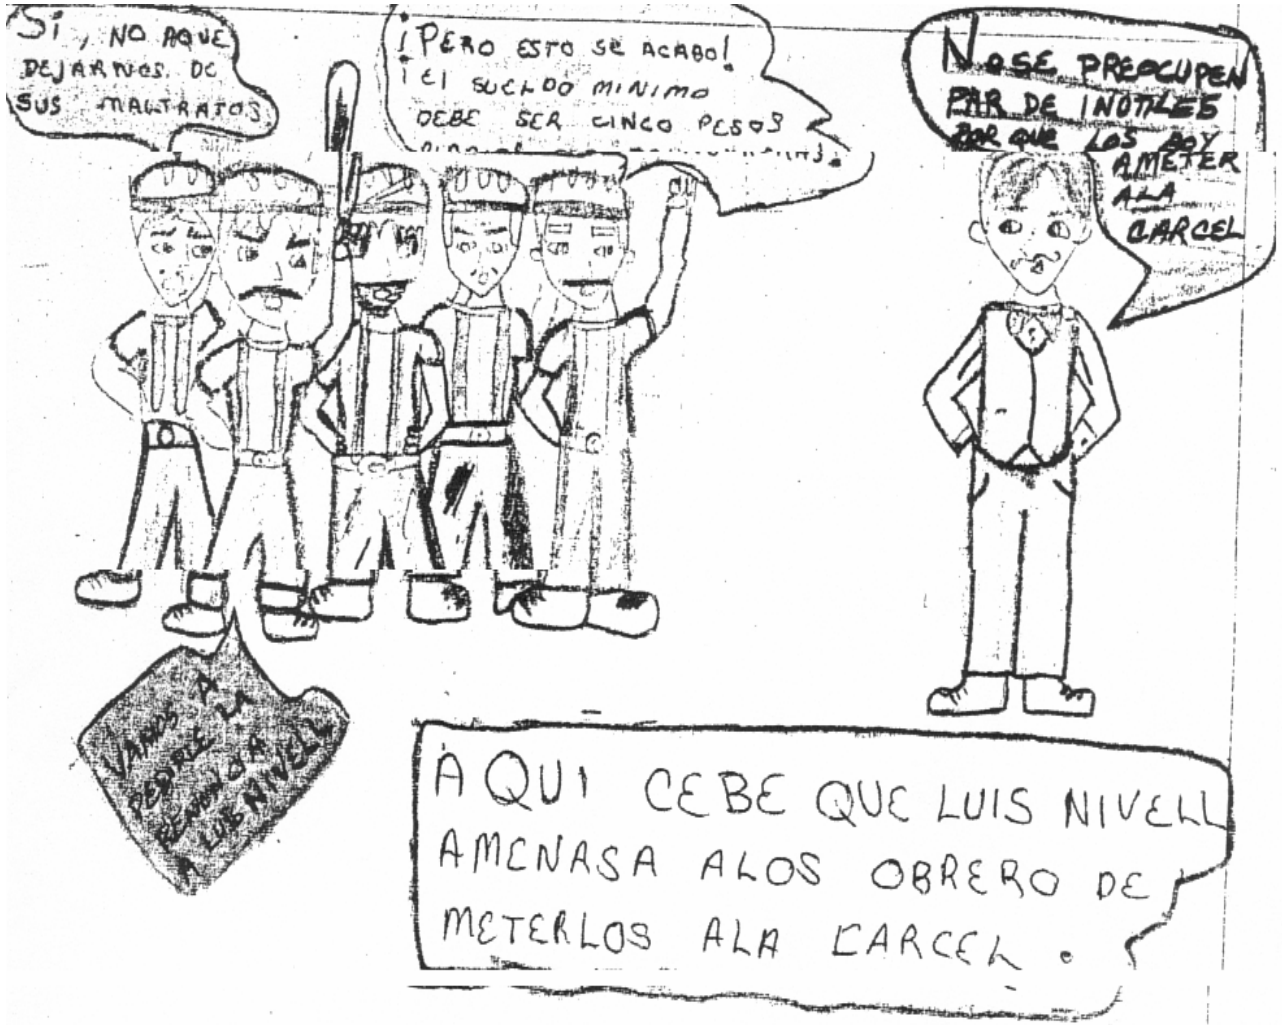 SI, NO AQUE
DEJARNOS DE
SUS MALTRATOS.
¡PERO ESTO SE ACABO!
¡El SUELDO MINIMO
DEBE SER CINCO PESOS
NOSE PREOCUPEN
PAR DE INOTILES
POR QUE LOS BOY
AMETER
ALA
CARCEL
VAMOS A
PEDIRLE LA
RENUNCIA
A LUIS NIVELL
AQUI CEBE QUE LUIS NIVELL
AMENASA ALOS OBRERO DE
METERLOS ALA CARCEL.